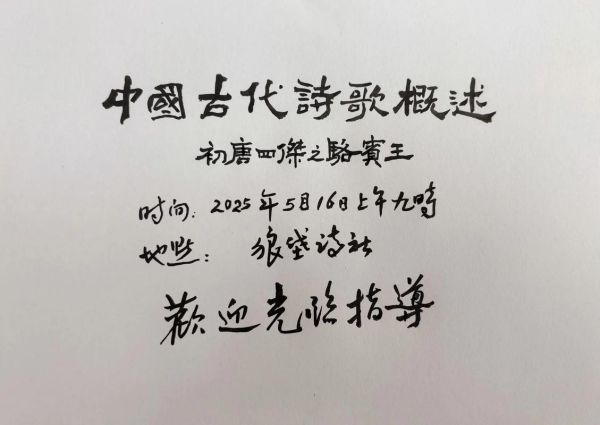 中國古代詩歌概述
初唐四傑之駱賓王
时间:2025年5月16日上午九時
地点:狼垡诗社
歡迎光臨指導